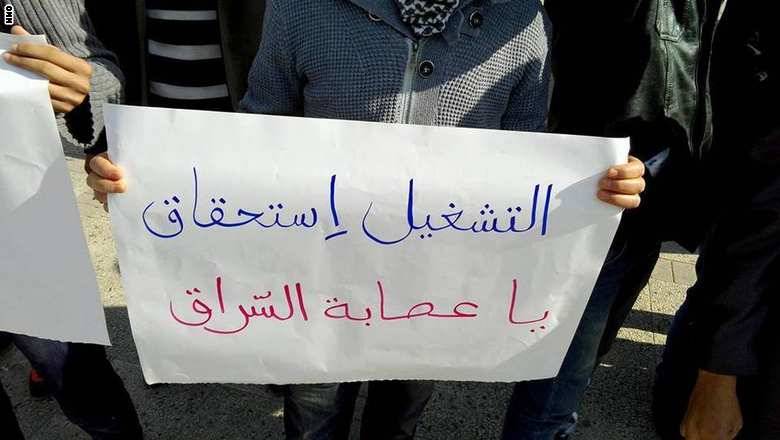 التشغيل إستحقاق
يا عصابة السّراق
CNN